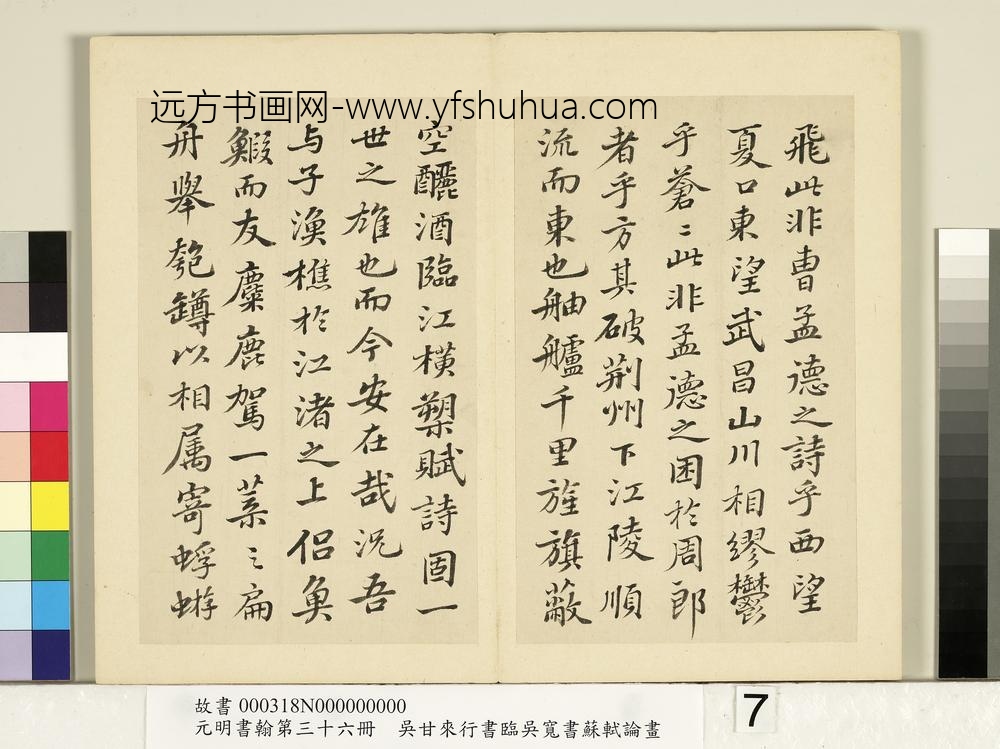 远方书画网-www.yfshuhua.com
飛此非曹孟德之詩乎西望
夏口東望武昌山川相繆鬱
乎蒼〻此非孟德之困於周郎
者乎方其破荆州下江陵順
流而東也舳艫千里旌旗蔽
空釃酒臨江橫槊賦詩固一
世之雄也而今安在哉況吾
与子漁樵於江渚之上侶魚
鰕而友麋鹿駕一葉之扁
舟舉匏罇以相属寄蜉蝣
故書 000318N000000000
元明書翰第三十六冊 吳甘來行書臨吳寬書蘇軾論畫
7